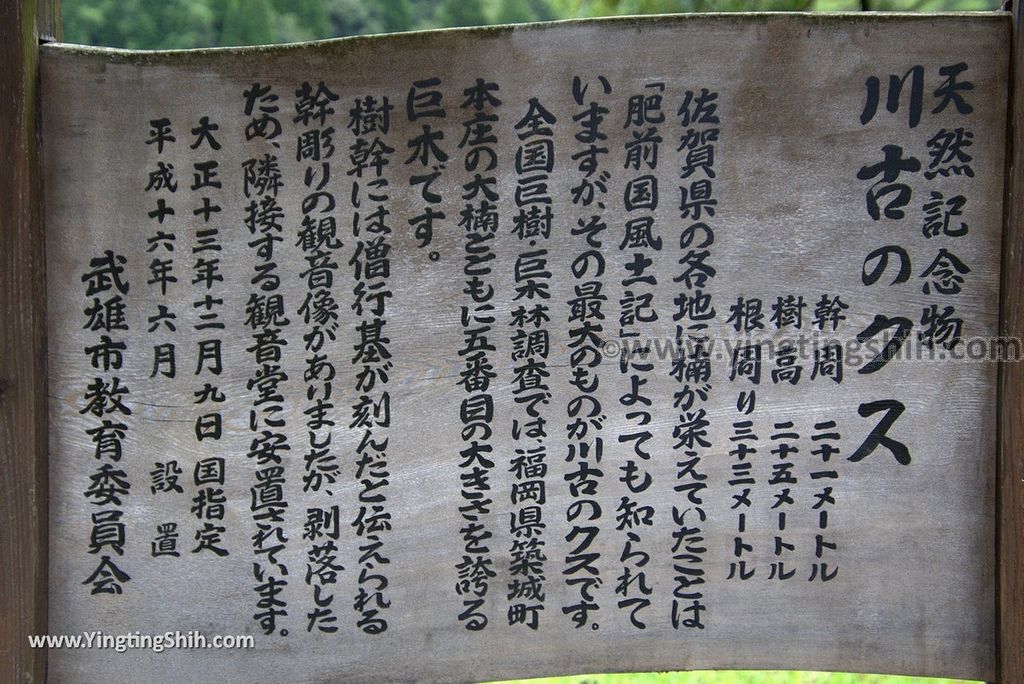 天然記念物
川古のクス
幹周 二十一メートル
樹高 二十五メートル
根周り 三十三メートル
佐賀県の各地に楠が栄えていたことは
「肥前国風土記」によっても知られて
いますが、その最大のものが川古のクスです。
全国巨樹・巨木林調査では、福岡県築城町
本庄の大楠とともに五番目の大きさを誇る
巨木です。
樹幹には僧行基が刻んだと伝えられる
幹彫りの観音像がありましたが、剥落した
ため、隣接する観音堂に安置されています。
大正十三年十二月九日 国指定
平成十六年六月 設置
武雄市教育委員会
©www.yingtingshih.com
www.YingtingShih.com